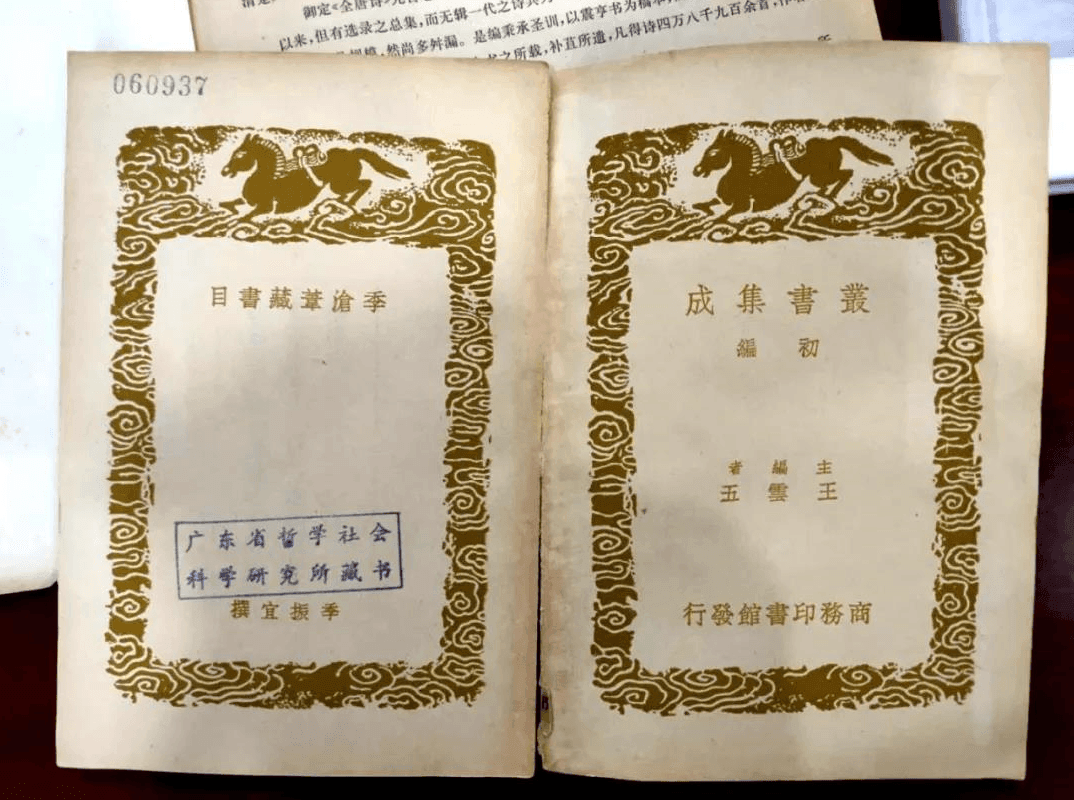 御定《全唐诗》九百
以来，但有选录之总集，而无辑一代之诗
然尚多舛漏。是编秉承圣训，以震亨书为稿本
之所载，补苴所遗，凡得诗四万八千九百余首，
叢書集成
初編
主編者
王雲五
商務印書館發行
060937
季滄葦藏書目
广东省哲学社会
科学研究所藏书
季振宜撰